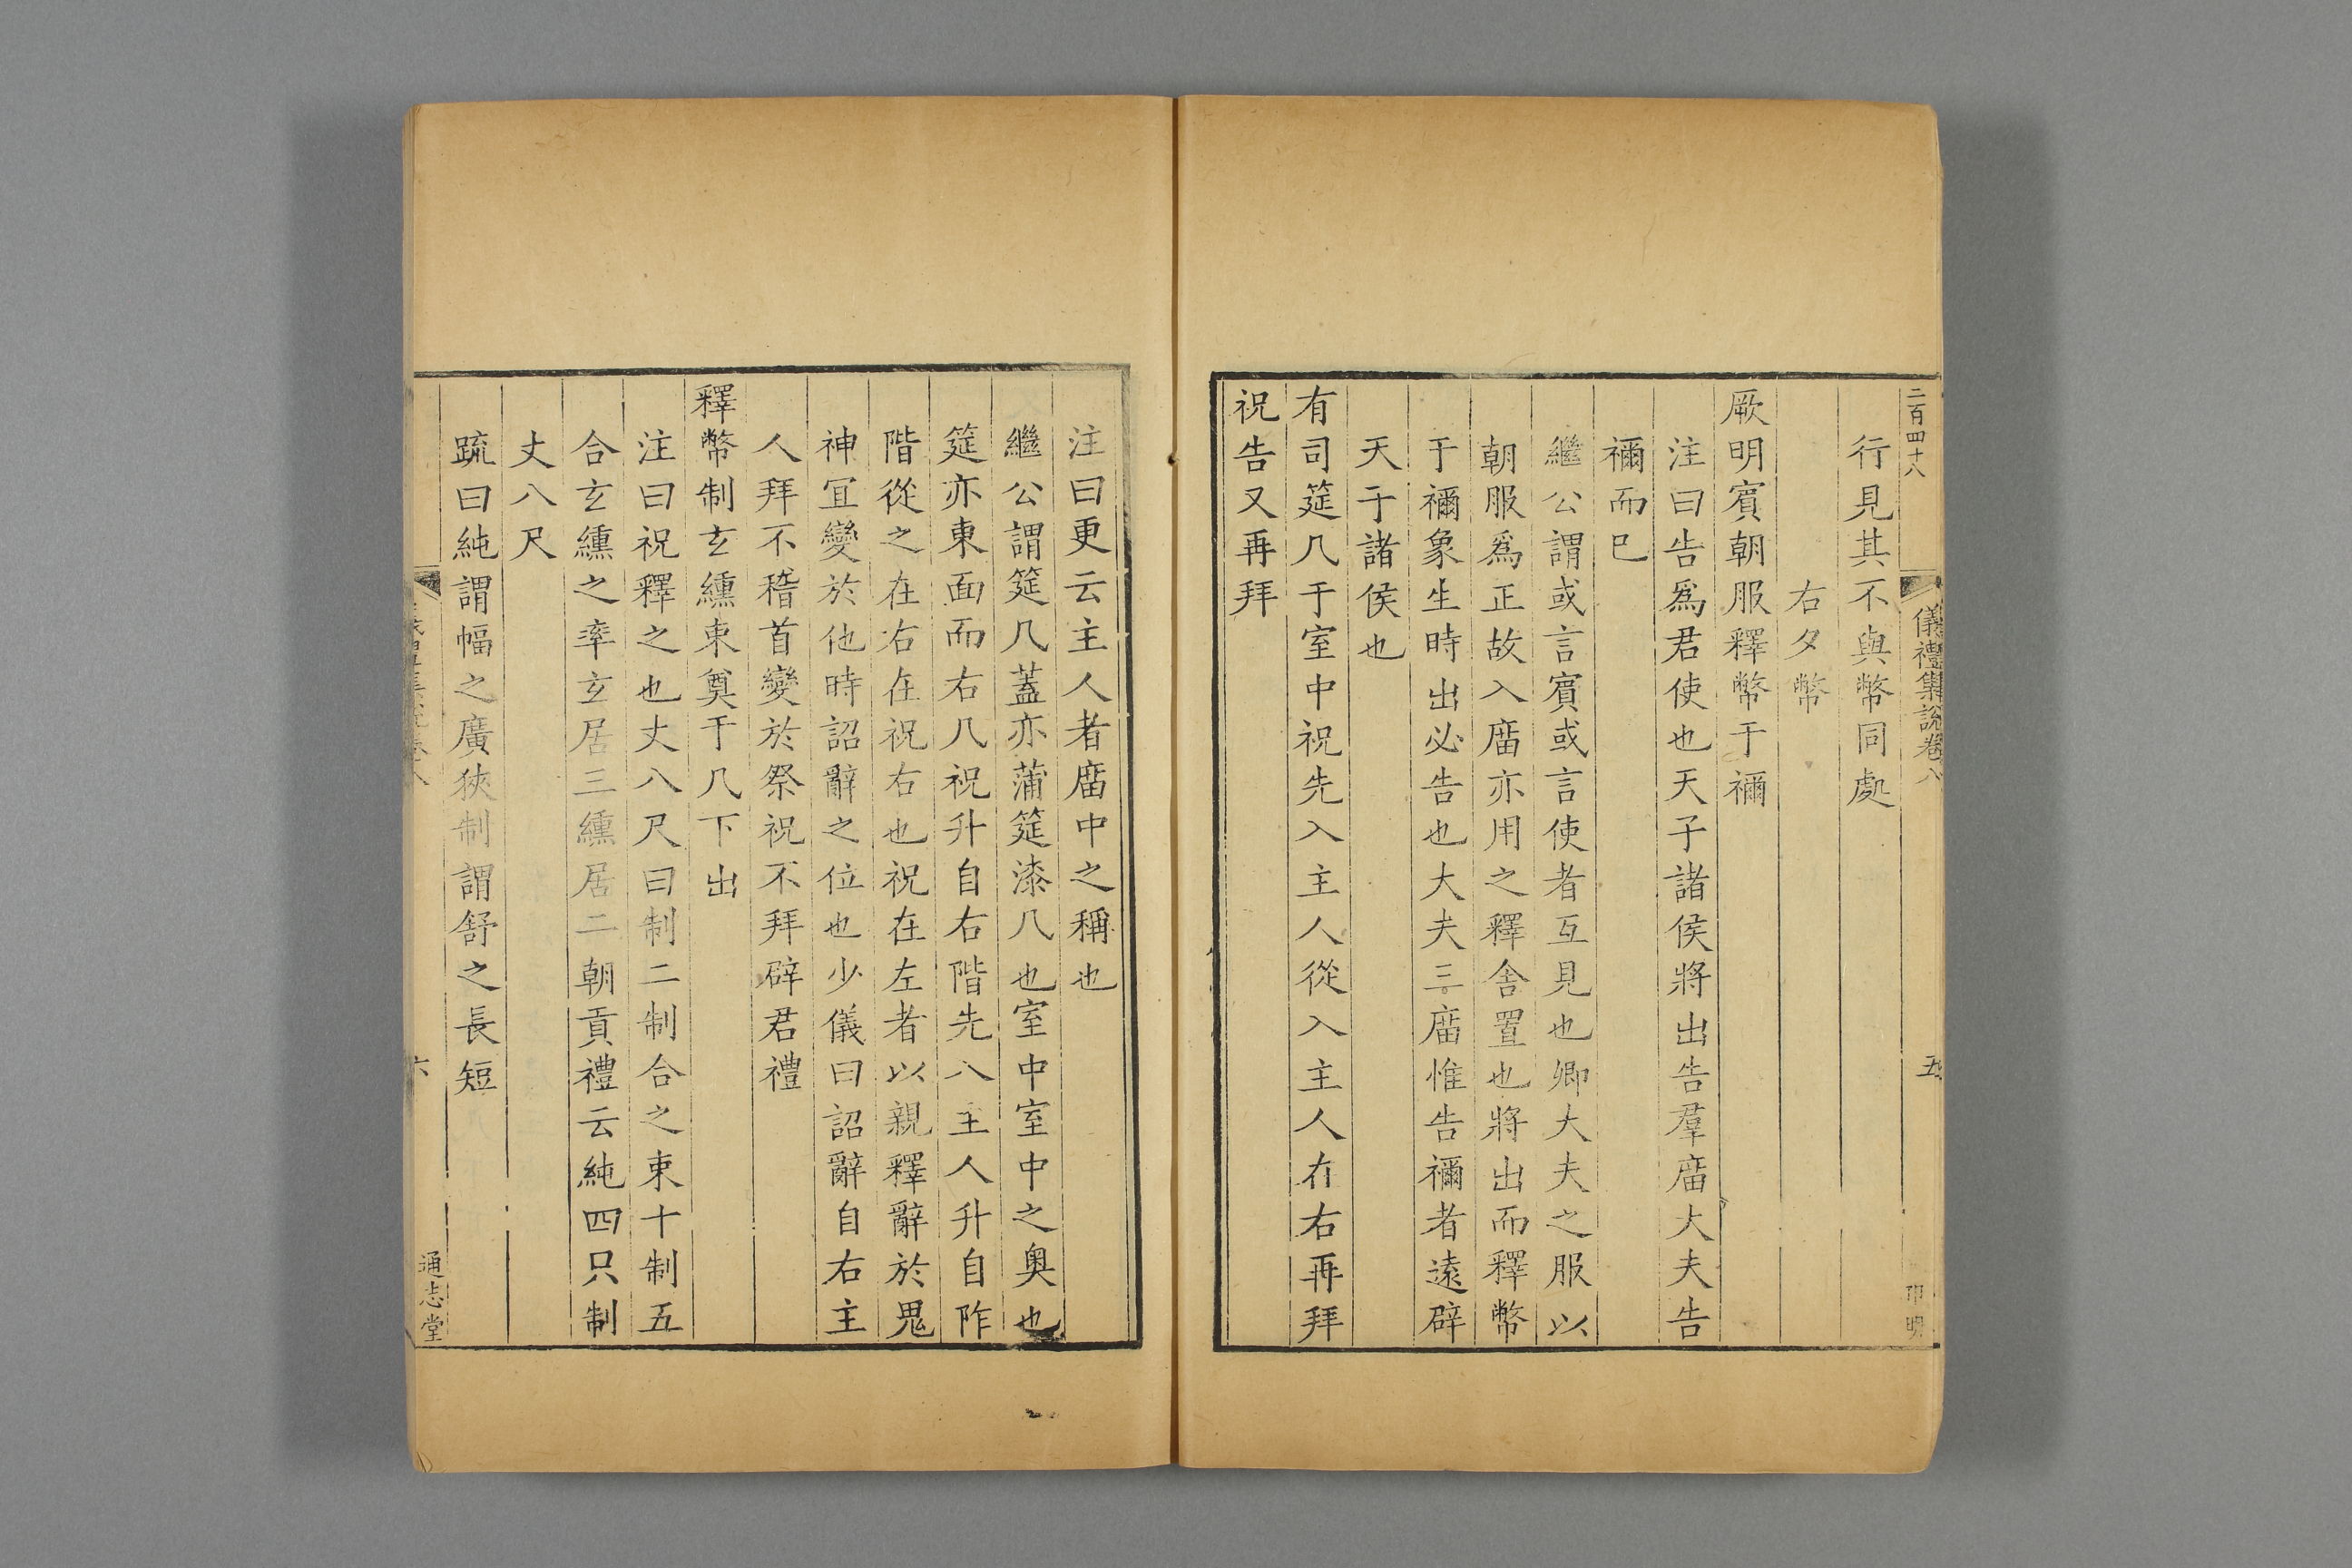 二百四十八
儀禮集說卷八
五
行見其不與幣同處
右夕幣
厥明賓朝服釋幣于禰
注曰告爲君使也天子諸侯將出告羣廟大夫告
禰而巳
繼公謂或言賓或言使者互見也卿大夫之服以
朝服爲正故入廟亦用之釋舍置也將出而釋幣
于禰象生時出必告也大夫三廟惟告禰者遠辟
天子諸侯也
有司筵几于室中祝先入主人從入主人在右再拜
祝告又再拜
注曰更云主人者廟中之稱也
繼公謂筵几蓋亦蒲筵漆几也室中室中之奥也
筵亦東面而右几祝升自右階先入主人升自阼
階從之在右在祝右也祝在左者以親釋辭於鬼
神冝變於他時詔辭之位也少儀曰詔辭自右主
人拜不稽首變於祭祝不拜辟君禮
釋幣制玄纁束奠于几下出
注曰祝釋之也丈八尺曰制二制合之束十制五
合玄纁之率玄居三纁居二朝貢禮云純四只制
丈八尺
疏曰純謂幅之廣狹制謂舒之長短
六
通志堂